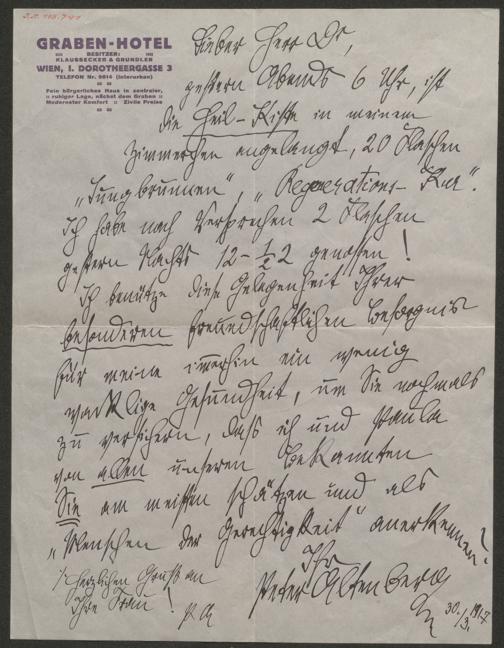 GRABEN-HOTEL
BESITZER:
KLAUSSECKER & GRUNDLER
WIEN, I. DOROTHEERGASSE 3
TELEFON Nr. 9614 (Interurban)
Fein bürgerliches Haus in zentraler,
ruhiger Lage, nächst dem Graben
Modernster Komfort Zivile Preise
Lieber Herr Dr,
gestern Abends 6 Uhr, ist
die Heil-Kiste in meinem
Zimmerchen angelangt, 20 Flaschen
„Jungbrunnen“, „Regenerations-Kur“.
Ich habe nach Versprechen 2 Flaschen
gestern Nachts 12-½2 genossen!
Ich benütze diese Gelegenheit Ihrer
besonderen freundschaftlichen Besorgnis
für meine immerhin ein wenig
wacklige Gesundheit, um Sie nochmals
zu versichern, dass ich und Paula
von allen unseren Bekannten
Sie am meisten schätzen und als
„Menschen der Gerechtigkeit“ anerkennen!
Ihr
Peter Altenberg
30./3. 1917
herzlichen Gruß an
Ihre Frau!
PA